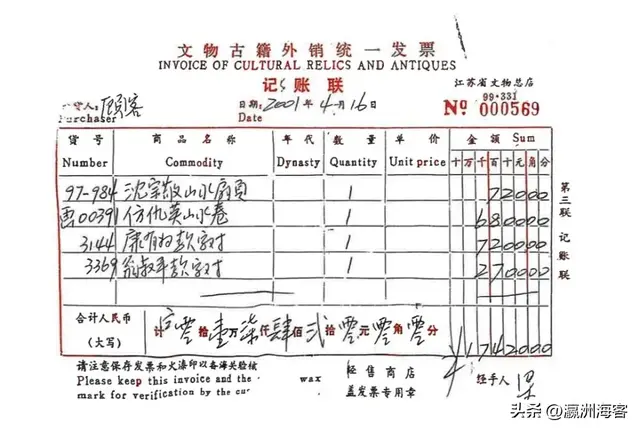 文物古籍外销统一发票
INVOICE OF CULTURAL RELICS AND ANTIQUES
记账联
江苏省文物总店
99·331
购货人: 顾客 日期: 2001年4月16日 № 000569
Purchaser Date
货号 商品名称 年代 数量 单价 金额 Sum
Number Commodity Dynasty Quantity Unit price 十万千百十元角分
97-984 沈宗敬山水扇页 1 72000
画00391 仿仇英山水卷 1 680000
3144 康有为款字对 1 720000
3369 翁叔平款字对 1 270000
合计人民币 计 零拾壹万柒仟肆佰弍拾零元零角零分 ¥1742000
(大写)
第三联 记账联
请注意保存发票和火漆印以备海关检核
Please keep this invoice and the wax
mark for verification by the cus
经售商店
盖发票专用章
经手人 梁
头条 @瀛洲海客